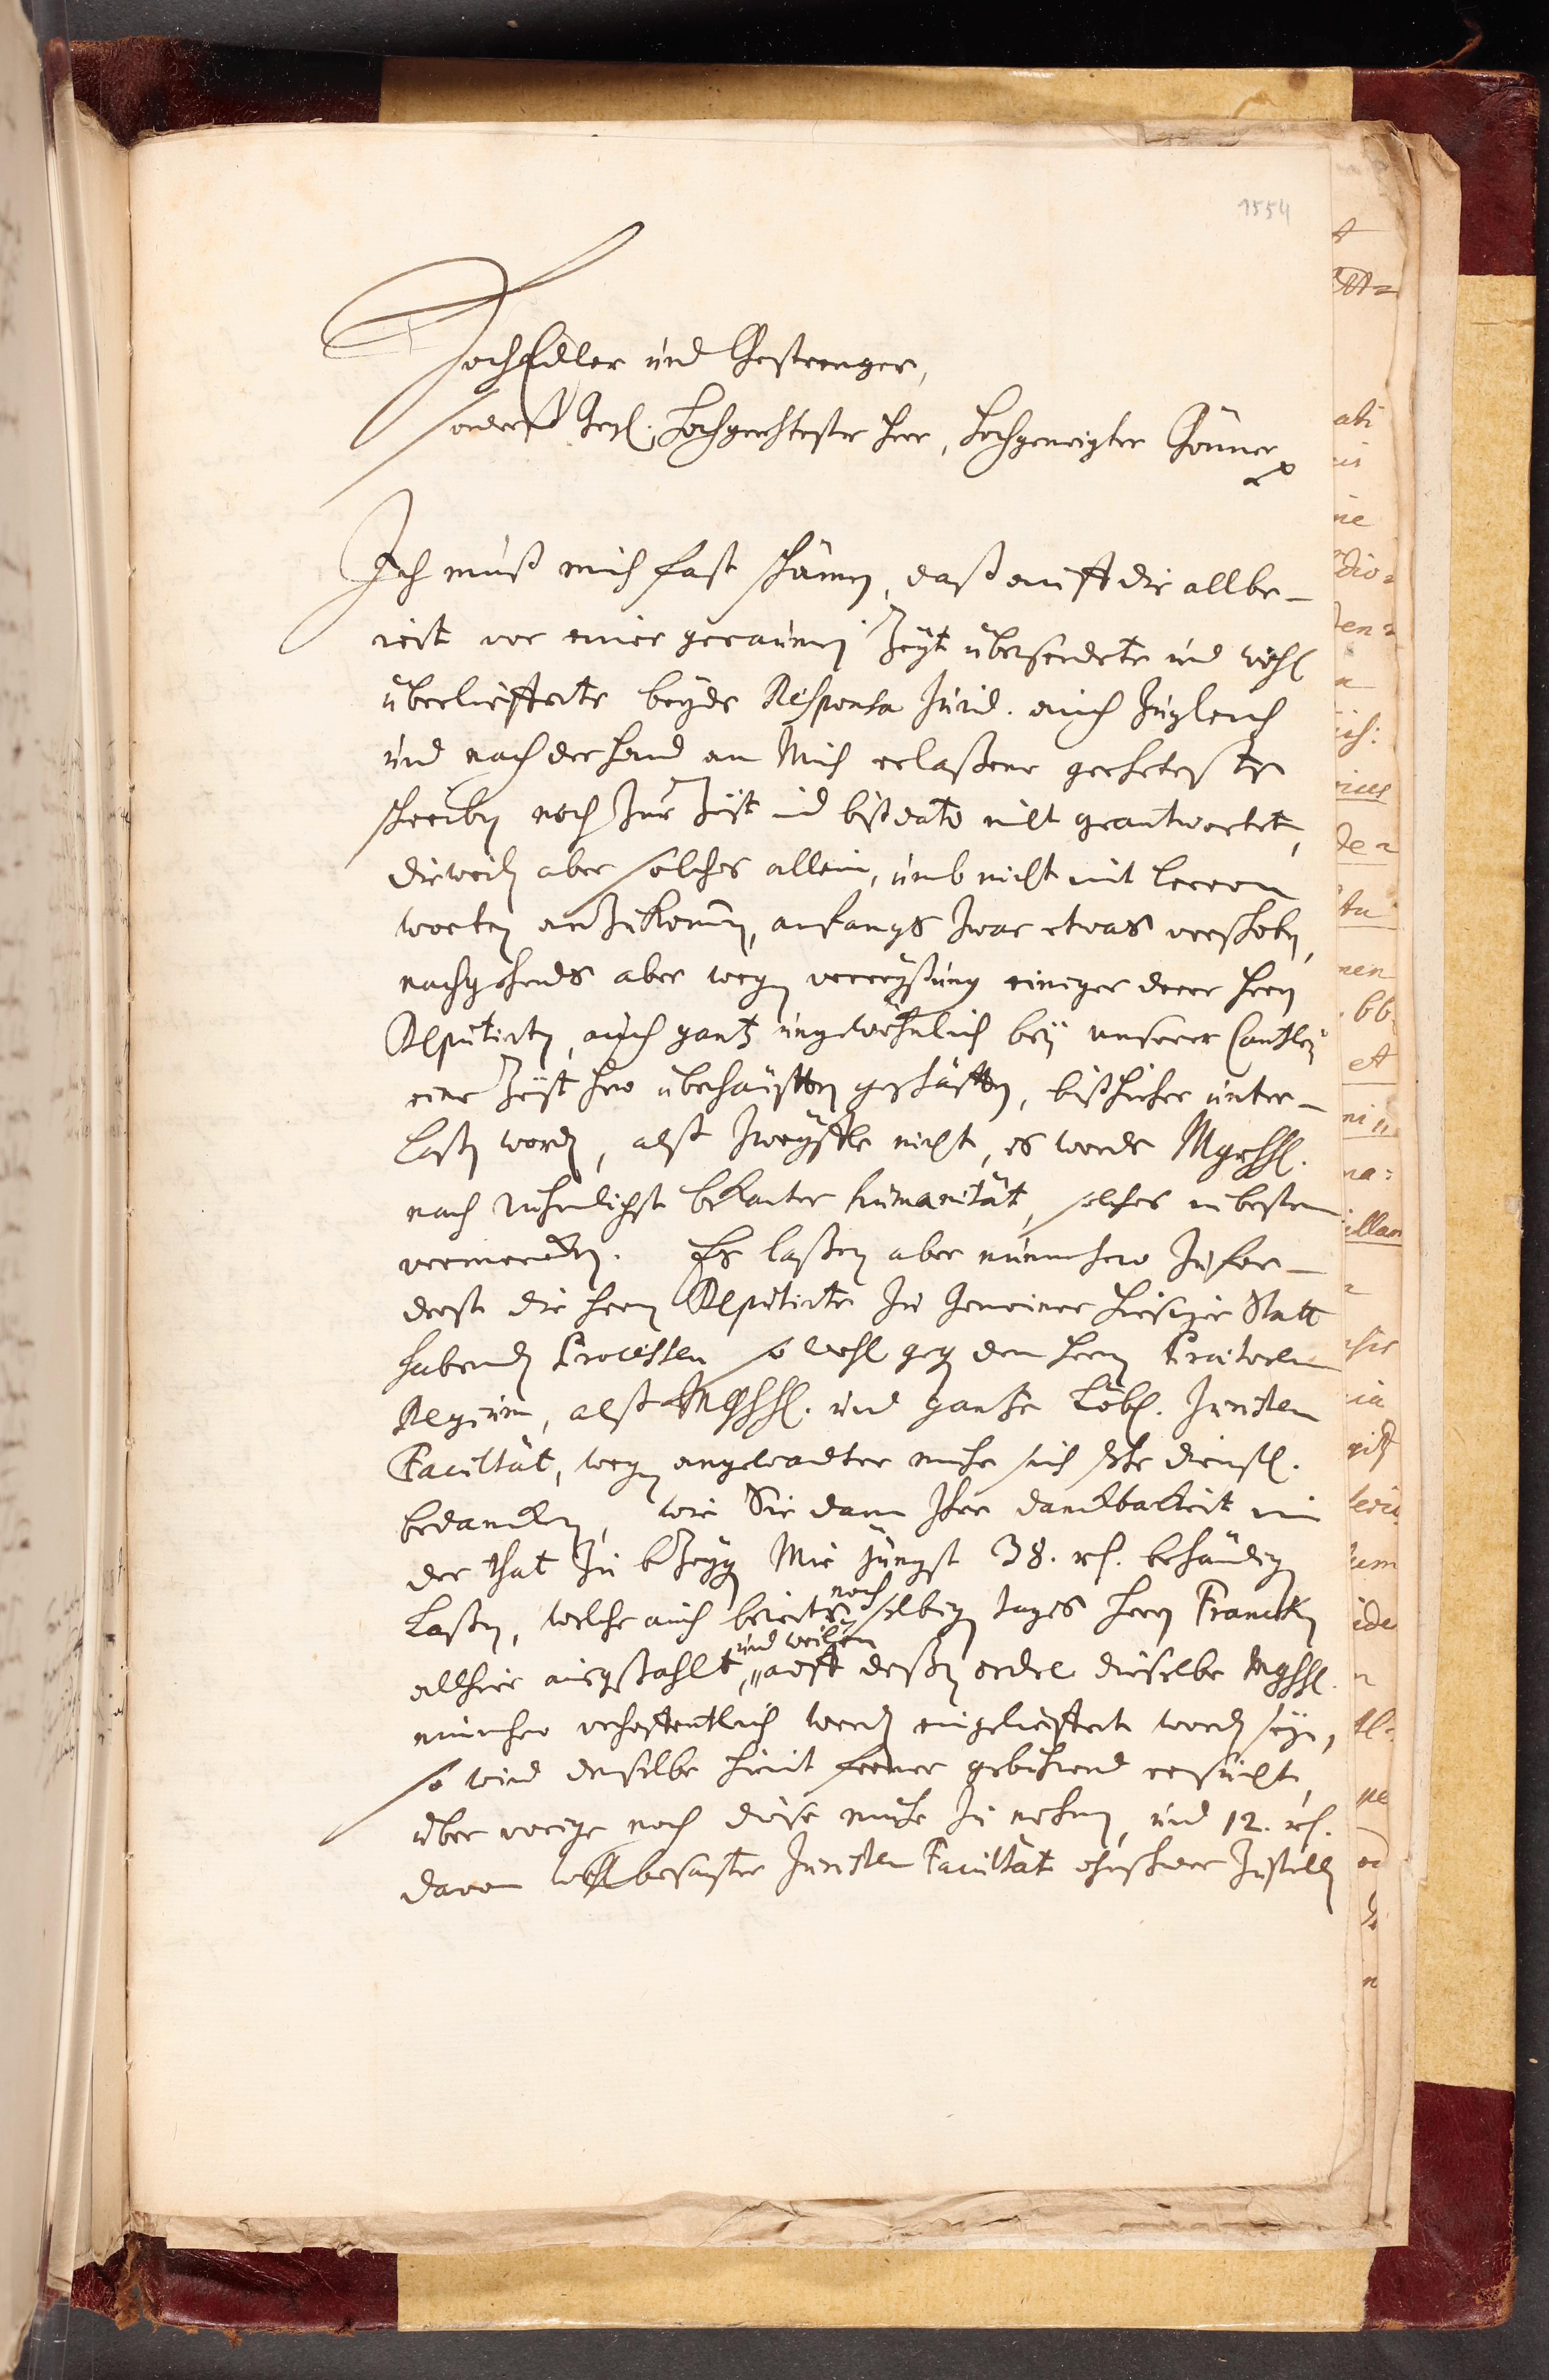 1554
HochEdler und Gestrenger,
sonders Hochgeehrtester Herr, Hochgeneigter Gönner
Ich muß mich fast schämen, daß auff die allbe-
reit vor einer geraumen Zeyt übersendete und wohl
überliefferte beyde Responsa Jurid. auch zugleich
und nach der hand an Mich erlaßene geehrteste
schreiben noch zur Zeit und biß dato nicht geantwortet,
dieweil aber solches allein, umb nicht mit leeren
worten anzukommen, anfangs zwar etwas verschoben,
nachgehends aber wegen verreyßung einiger derer Herren
Deputirten, auch gantz ungewöhnlich bey unserer Cantzley
eine Zeyt hero überhäufften geschäfften, bißhieher unter-
laßen worden, alß zweyffle nicht, es werde MghH.
nach rühmlichst bekanter humanität, solches im besten
vermercken. Es laßen aber nunmehro zuför-
derst die Herren Deputirte zu gemeiner hiesiger Statt
habenden Processen so wohl gegen den Herrn Praetorem
Regium, alß MghH. und gantze Löbl. Juristen
Facultät, wegen angewandter mühe sich dienstl.
bedancken, wie Sie dann Ihre danckbarkeit in
der that zu bezeygen Mir jüngst 38. rh. behändigen
laßen, welche auch bereits noch selbigen tages Herrn Francken
allhier außgezahlt, und weilen auff deßen ordre dieselbe MghH.
nunmehro verhoffentlich werden eingelieffert worden seyn,
so wird derselbe hiemit ferner gebührend ersucht,
über vorige noch diese mühe zu nehmen, und 12. rh.
davon wohlbesagter Juristen Facultät ohnschwer zustellen